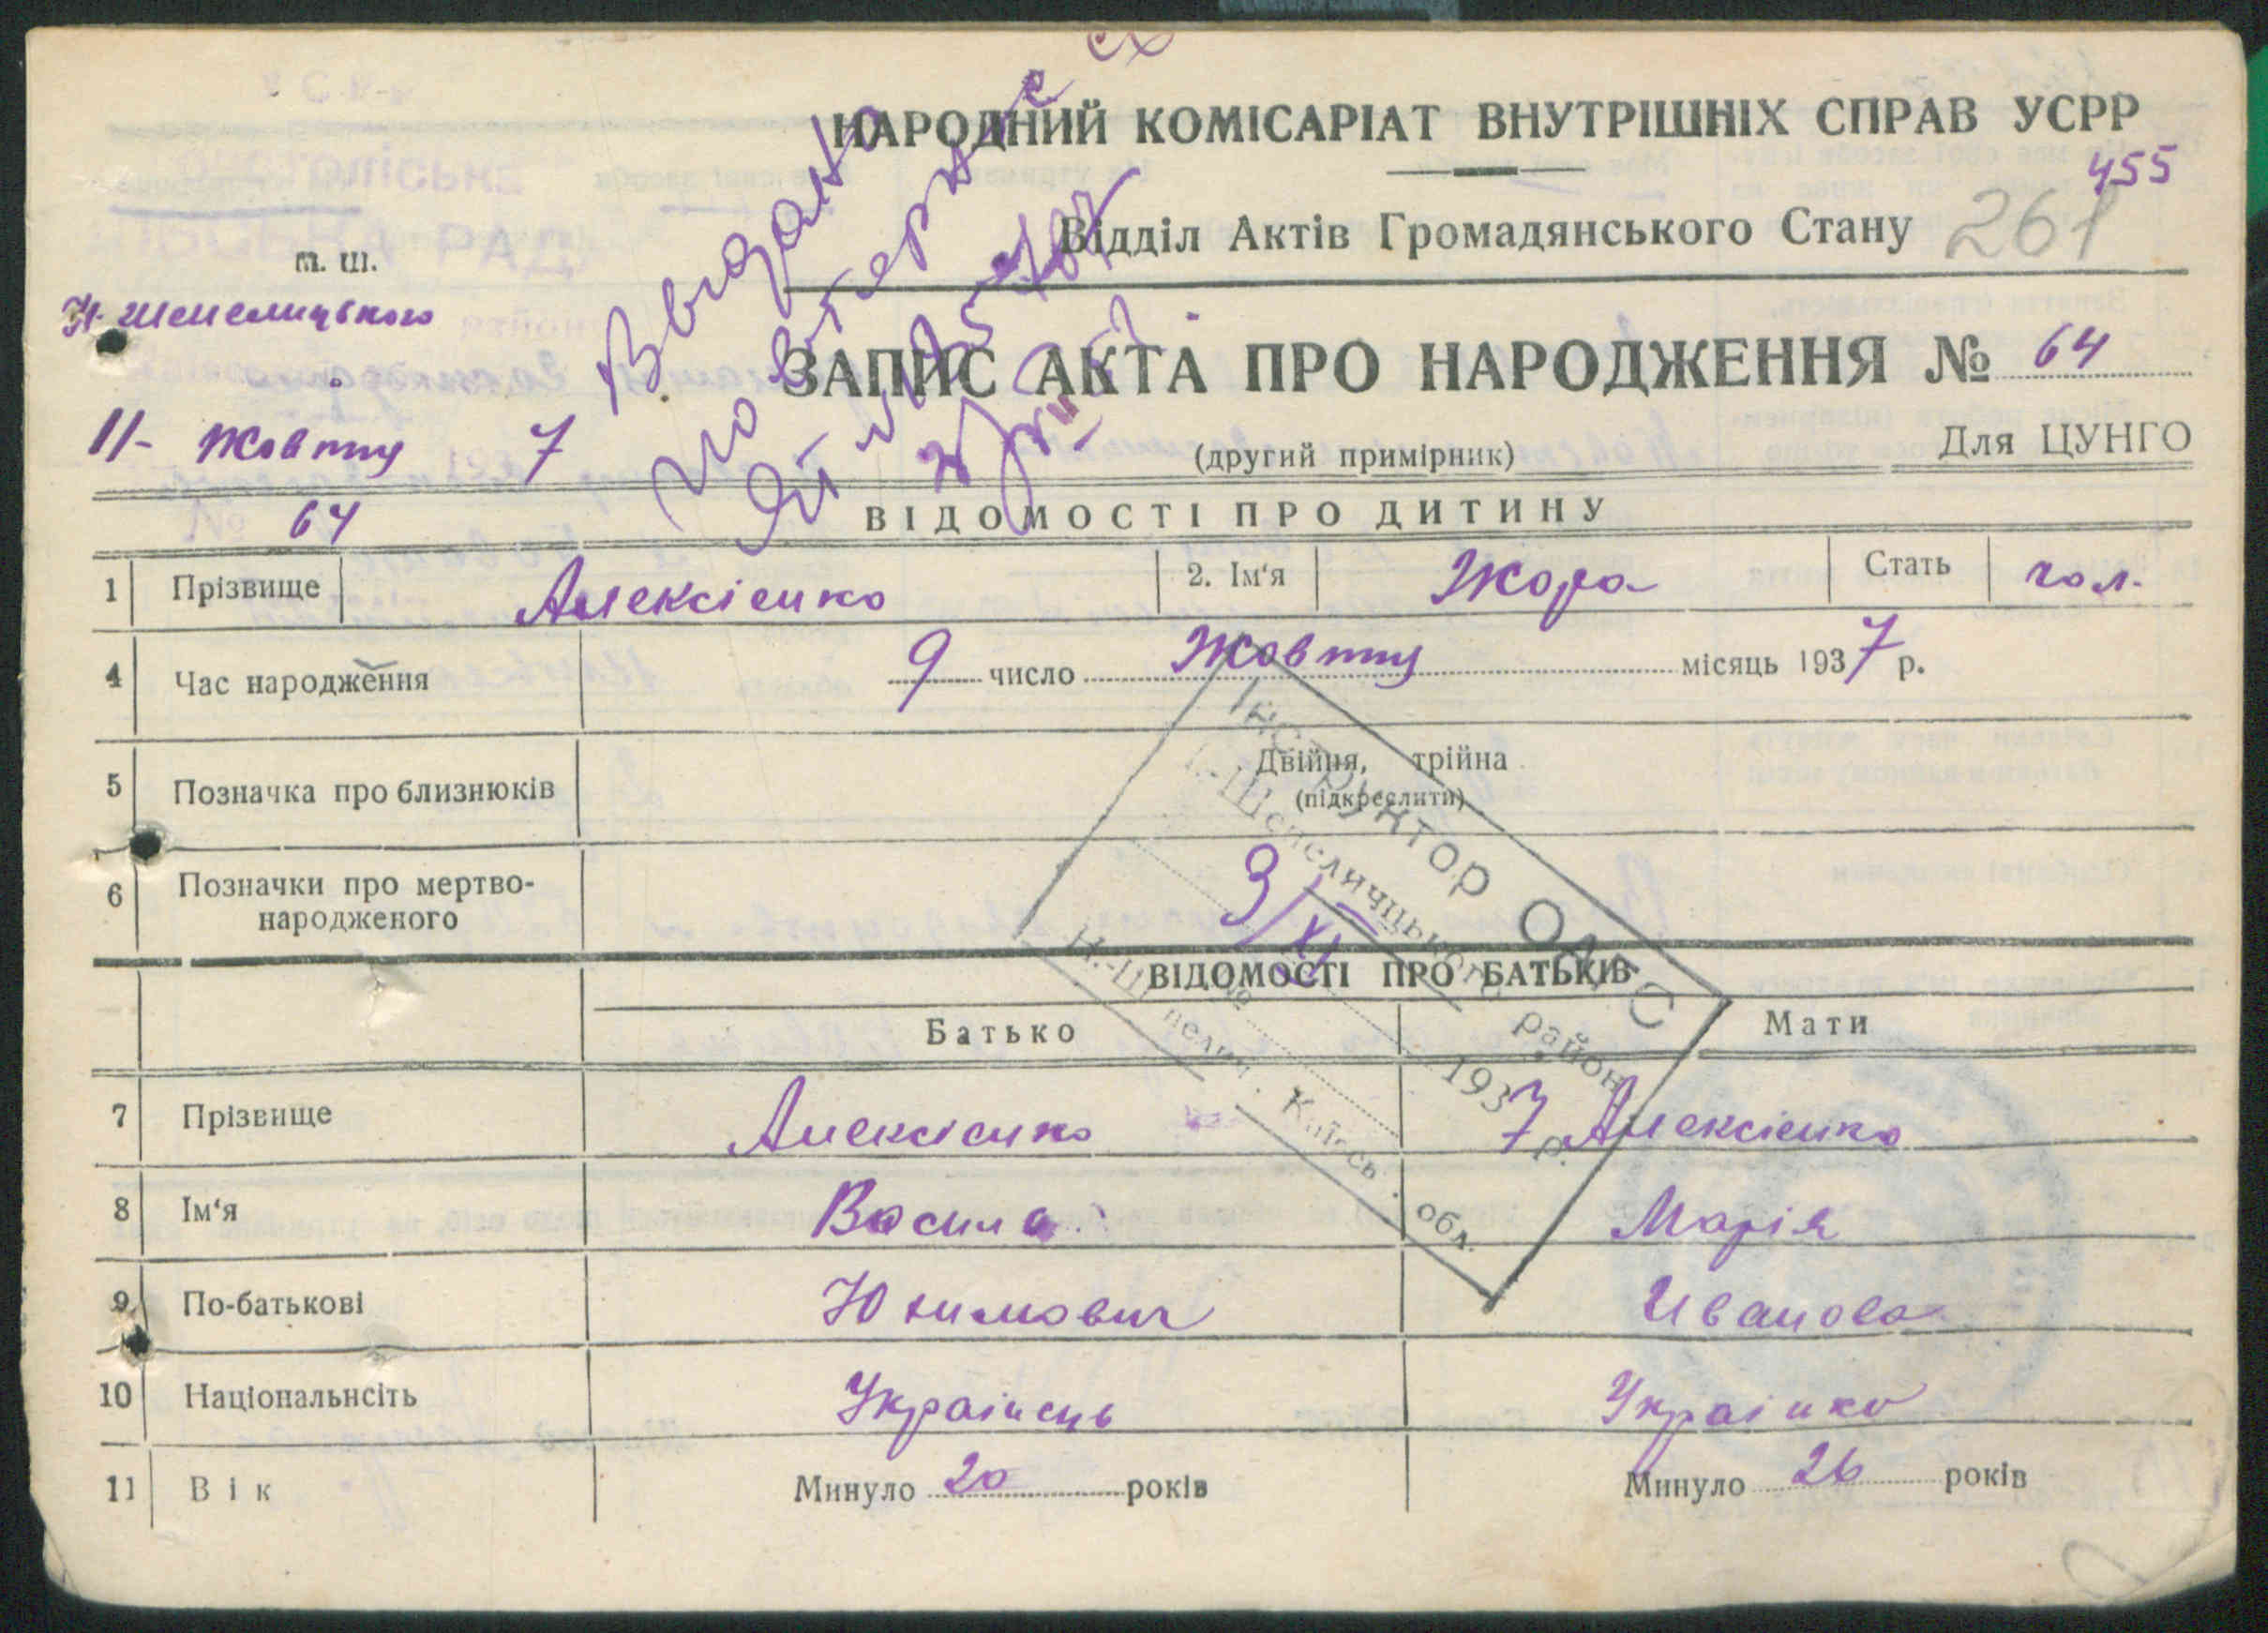 НАРОДНИЙ КОМІСАРІАТ ВНУТРІШНІХ СПРАВ УСРР
455
Відділ Актів Громадянського Стану 261
м. ш.
Н-Шепелицького
Выдано
повтерж
ЗАПИС АКТА ПРО НАРОДЖЕННЯ № 64
11- Жовтня 7
(другий примірник) Для ЦУНГО
64
ВІДОМОСТІ ПРО ДИТИНУ
1 Прізвище Алексієнко 2. Ім'я Жора Стать чол.
4 Час народження 9 число Жовтня місяць 1937 р.
5 Позначка про близнюків Двійня, трійна
(підкреслити)
6 Позначки про мертво-
народженого
Інструктор ОАГС
Н.-Шепеличцького району
9/XI 1937 р.
Н.-Шепелич. Київськ. обл.
ВІДОМОСТІ ПРО БАТЬКІВ
Батько Мати
7 Прізвище Алексієнко Алексієнко
8 Ім'я Василь Марія
9 По-батькові Юхимович Иванова
10 Національнсіть Українець Українка
11 Вік Минуло 20 років Минуло 26 років